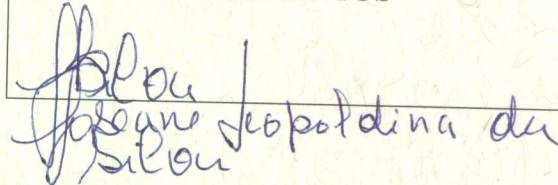 Silva
Joseane Leopoldina da
Silva